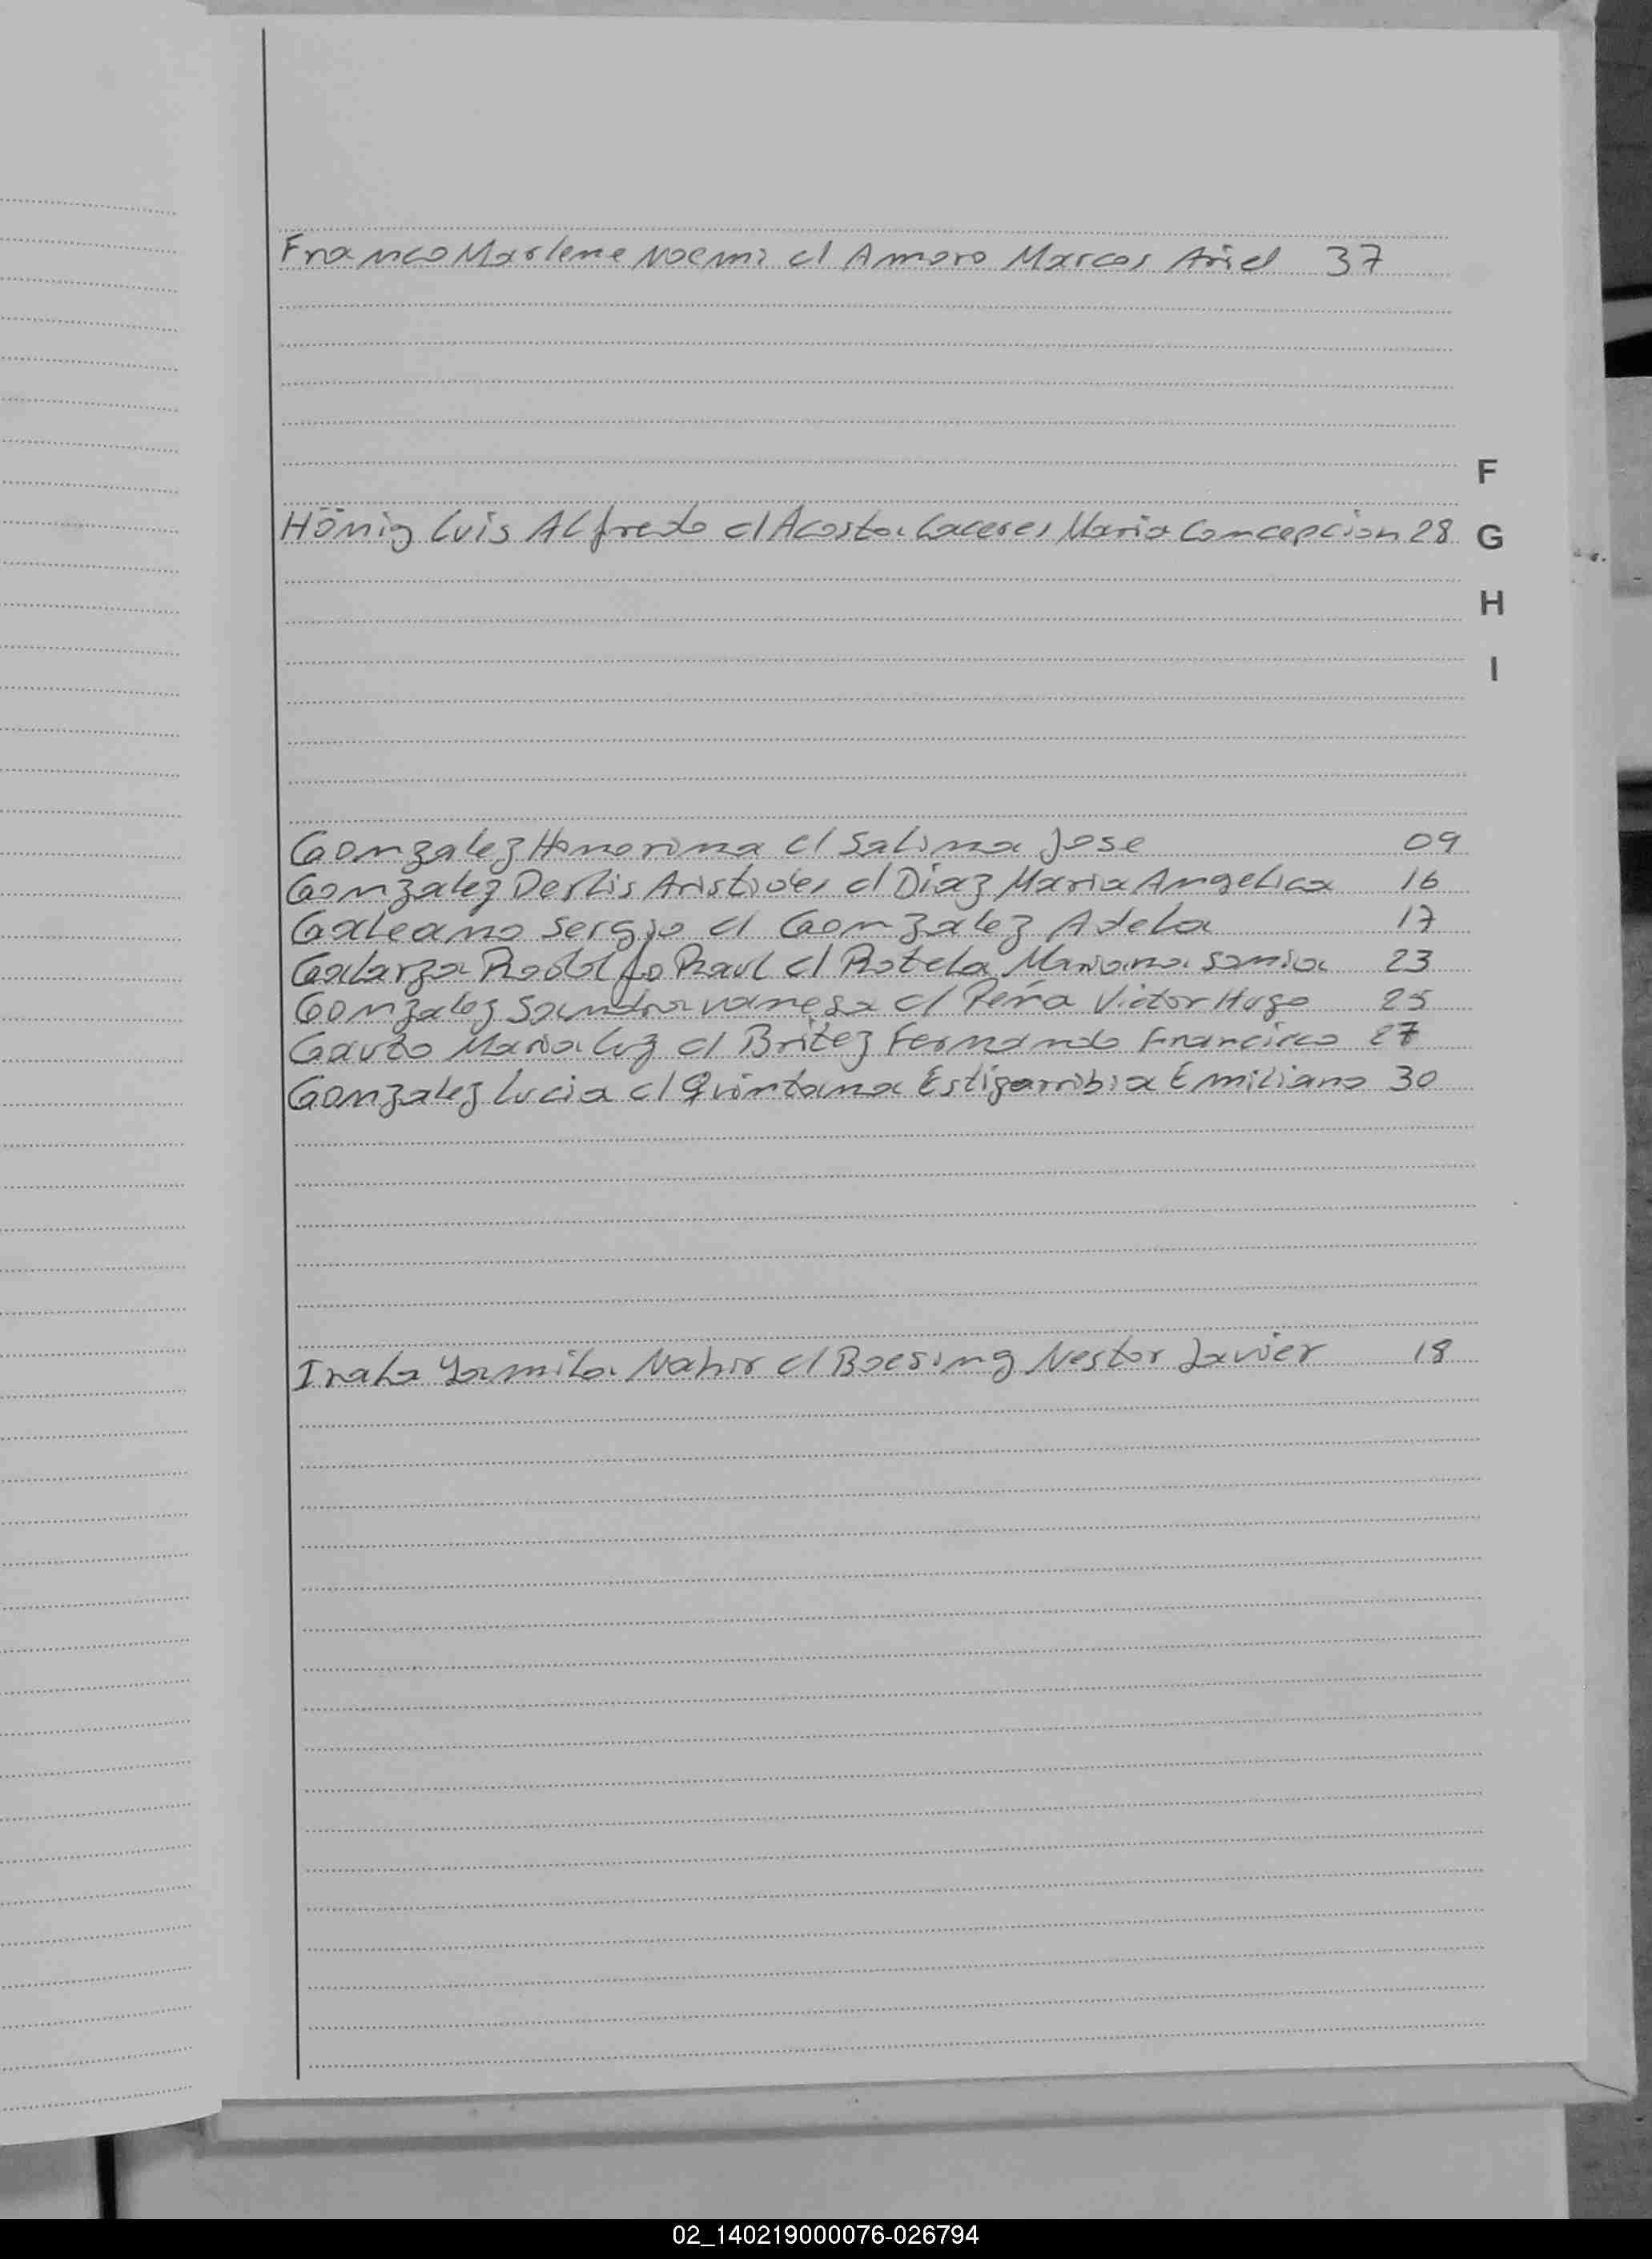 Franco Marlene Noemi c/ Amaro Marcos Ariel 37
F
Hönig Luis Alfredo c/ Acosta Caceres Maria Concepcion 28
G
H
I
Gonzalez Honorina c/ Salina Jose 09
Gonzalez Derlis Aristides c/ Diaz Maria Angelica 16
Galeano Sergio c/ Gonzalez Adela 17
Galarza Rodolfo Raul c/ Rotela Mariana Sonia 23
Gonzalez Sandra Vanesa c/ Peña Victor Hugo 25
Gauto Maria Luz c/ Britez Fernando Francisco 27
Gonzalez Lucia c/ Quintana Estigarribia Emiliano 30
Irala Yamila Nahir c/ Boesing Nestor Javier 18
02_140219000076-026794